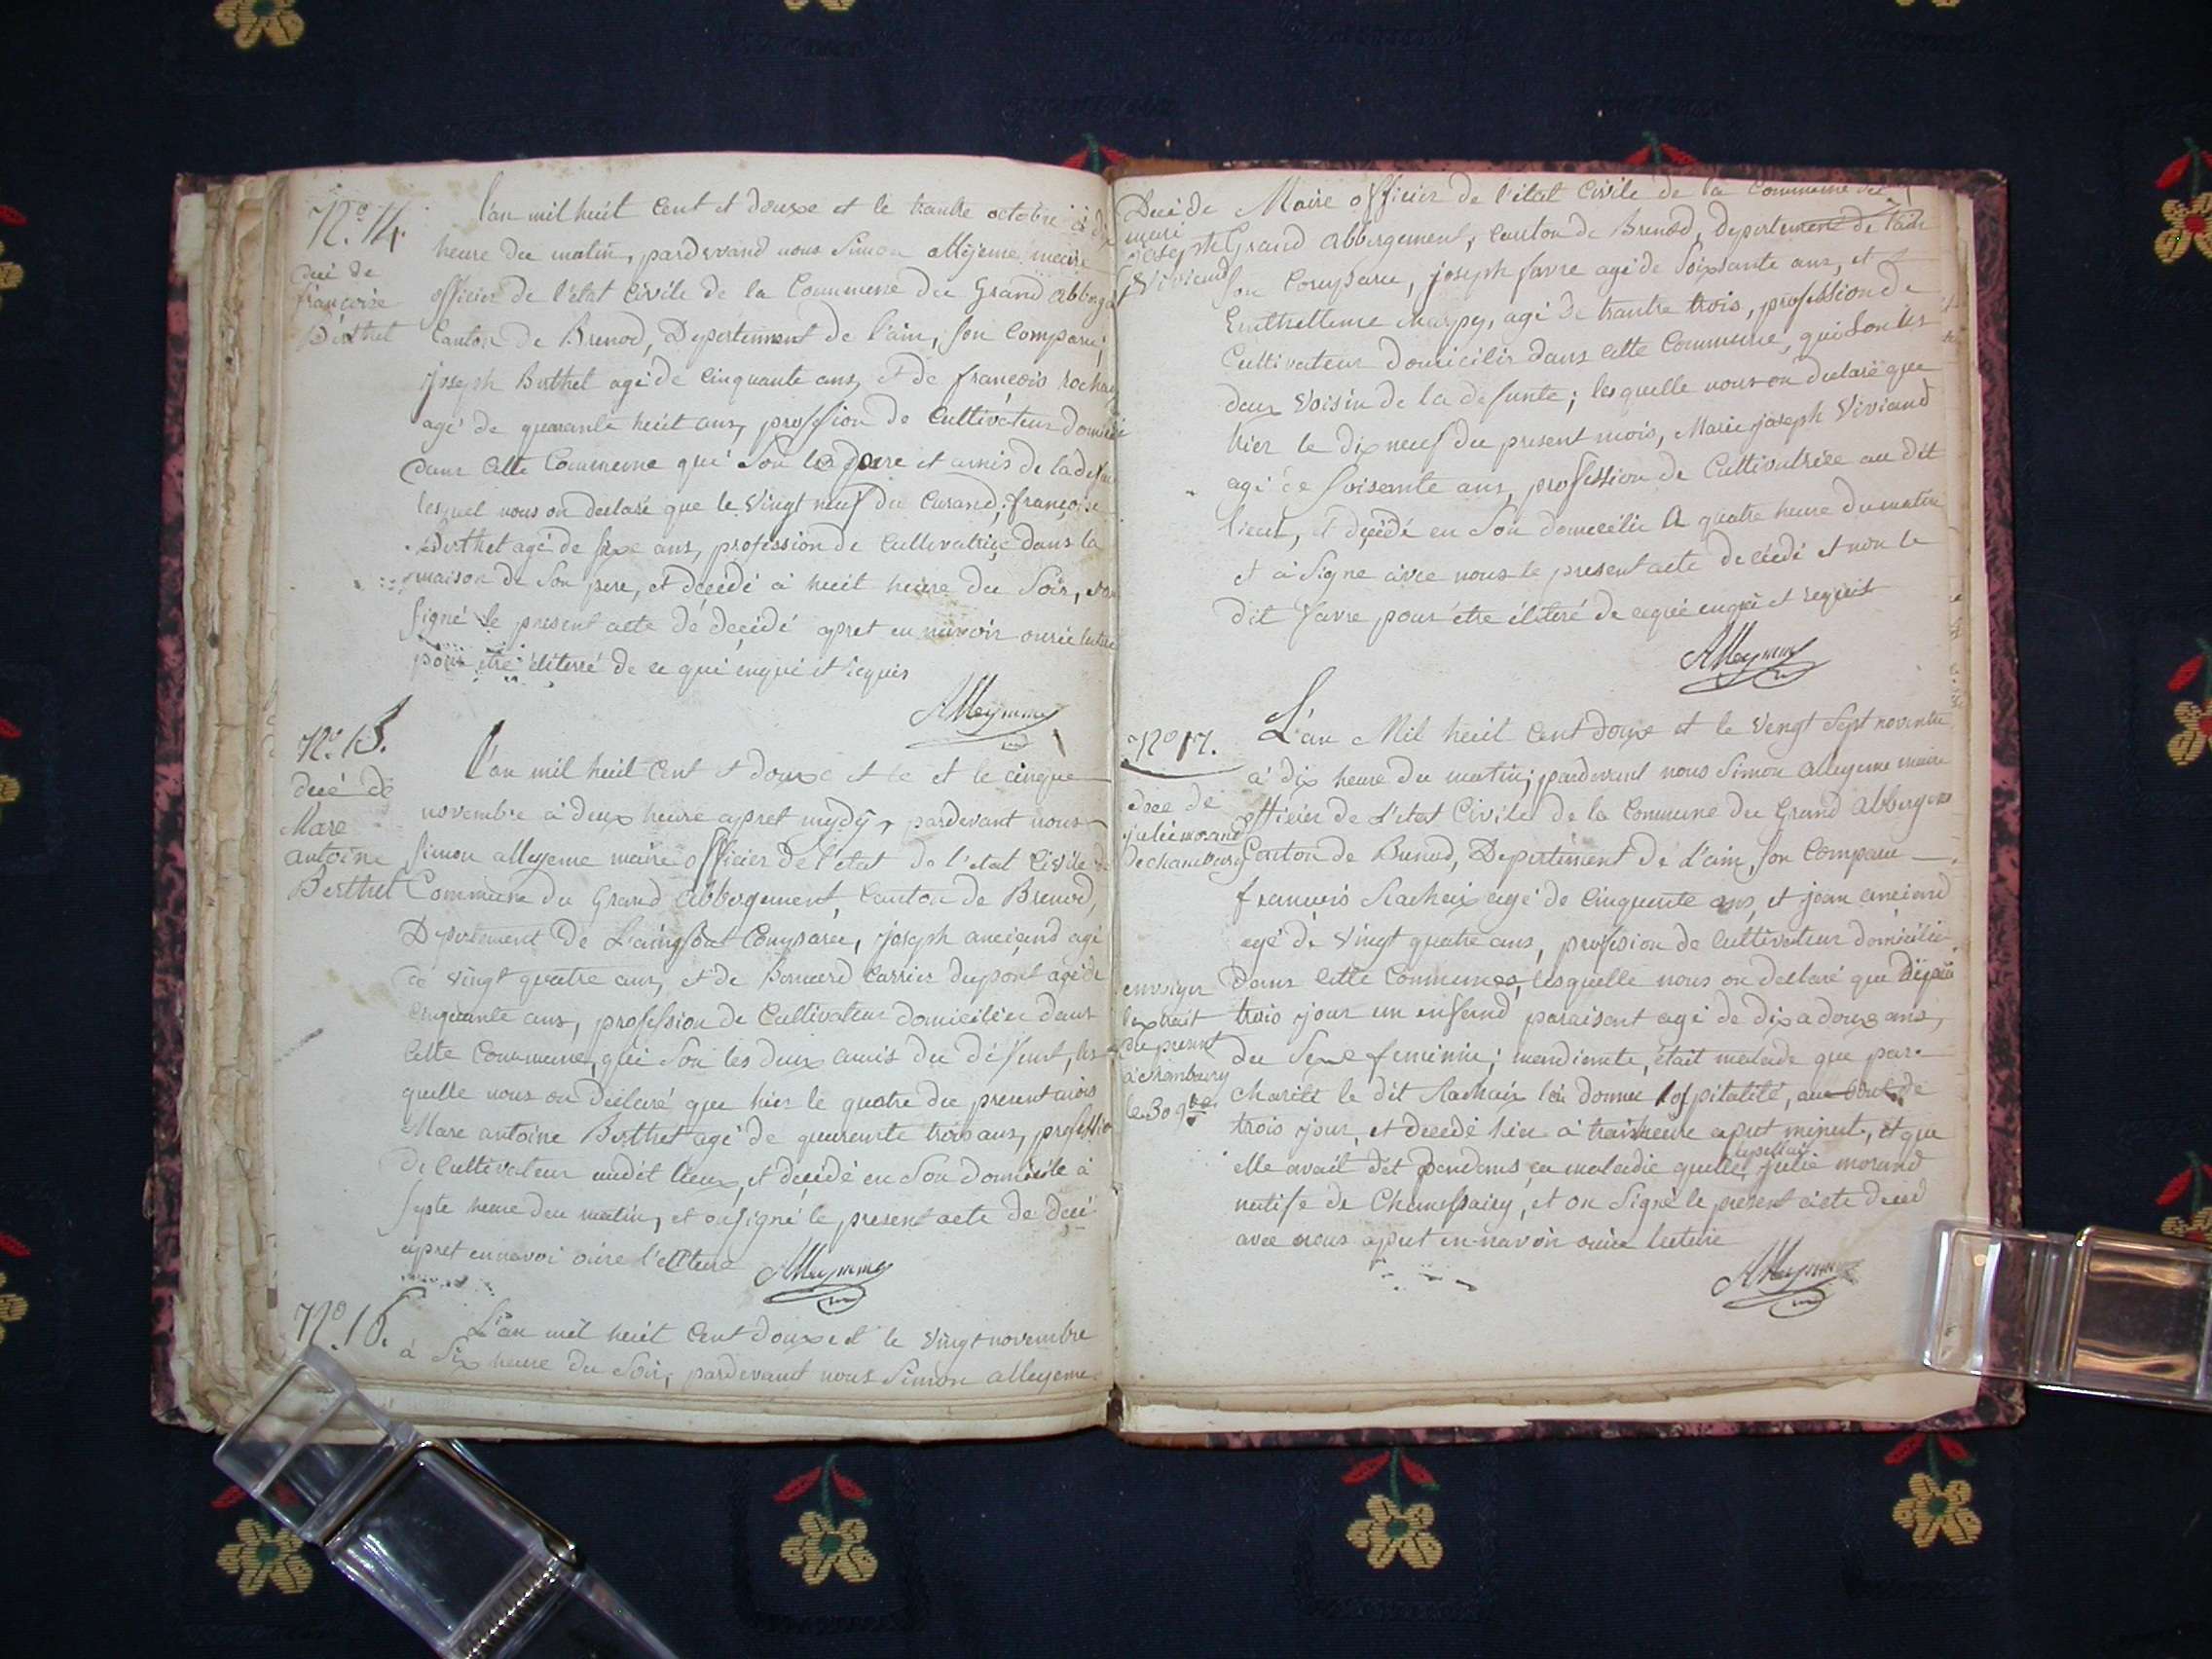 N.o 14.
l'an mil huit cent et douze et le trantre octobre à
heure du matin, pardevand nous Simon alleyeme maire
décé de
françoise
Berthet
officier de l'état civile de la Commune du Grand abberg
Canton de Brenod, Departement de l'ain, son Comparu,
joseph Berthet agé de cinquante ans, et de françois rochai
agé de quarante huit ans, profession de Cultivateur
dans cette Commune qui son le pere et amis de la
lesquel nous on declaré que le vingt neuf du Curand, françoise
Berthet agé de size ans, profession de Cultivatrice dans la
maison de son pere, et decédé à huit heure du Soir,
signé le present acte dé decédé apret en navoir ouiie
pour etre éliteré de ce qui enqué et requis
Alleymme
N.o 15.
décé de
Marc
antoine
Berthet
l'an mil huit cent et douze et le et le cinque
novembre à deux heure apret mydÿ, pardevant nous
Simon alleyeme maire officier de l'état de l'état Civile
Commune du Grand abbergement, Canton de Brenod,
Departement de L'aing, sont Comparu, joseph anciand agé
de vingt quatre ans, et de Bernard Carrier dupont agé de
cinquante ans, profession de Cultivateur domicilier dans
cette Commune, qui son les deux amis du défunt, les
quelle nous on déclaré que hier le quatre du present mois
Marc antoine Berthet agé de quarente trois ans,
de Cultivateur audit lieux, et decédé en Son domicile à
septe heure du matin, et on signé le present acte de décé
apret ennavoi ouire l'eCture
Alleymme
N.o 16.
L'an mil huit cent douze et le vingt novembre
à Six heure du Soir, pardevant nous Simon alleyeme
Décé de
marie
joseph
Viviand
Maire officier de l'état Civile de la Commune du
Grand abbergement, Canton de Brenod, Departement de l'ain
son Comparu, joseph favre agé de soixante ans, et
marpy, agé de trantre trois, profession de
Cultivateur domicilier dans cette Commune, qui son les
deux voisin de la defunte; lesquelle nous on declaré que
hier le dix neuf du present mois, Marie joseph Viviand
agé de soisente ans, profession de Cultivatrice au dit
lieut, et décédé en son domicilie A quatre heure du matin
et à signe avec nous le present acte decédé et non le
dit favre pour être éliteré de cequi enqui et requit
Alleymme
N.o 17.
L'an Mil huit cent douze et le vengt sept novembre
à dix heure du matin, pardevant nous Simon alleyeme maire
déce de
julie morand
de chambery
officier de L'état Civile de la Commune du Grand abbergem
Canton de Brenod, Departement de L'ain, son Comparu
francois Rachaix agé de cinquente ans, et jean anciand
agé de vingt quatre ans, profession de Cultivateur domicilié
envoyer
l'extrait
du present
à chambery
le 30 9bre
dans cette Commune, lesquelle nous on declaré que dépuis
trois jour un enfand paraisent agé de dix a douze ans,
du sexe feminin; mendiente, était malade que par
charité le dit Rachaix l'a donnee l'ospitalité, au bout de
trois jour, et decédé hier à heure apret minut, et que
elle avait dit pendans ca maladie quelle julie morand
natife de Chamssairy, et on signé le present acte deced
avec nous apret en navoir ouiie lecture
Alleymme